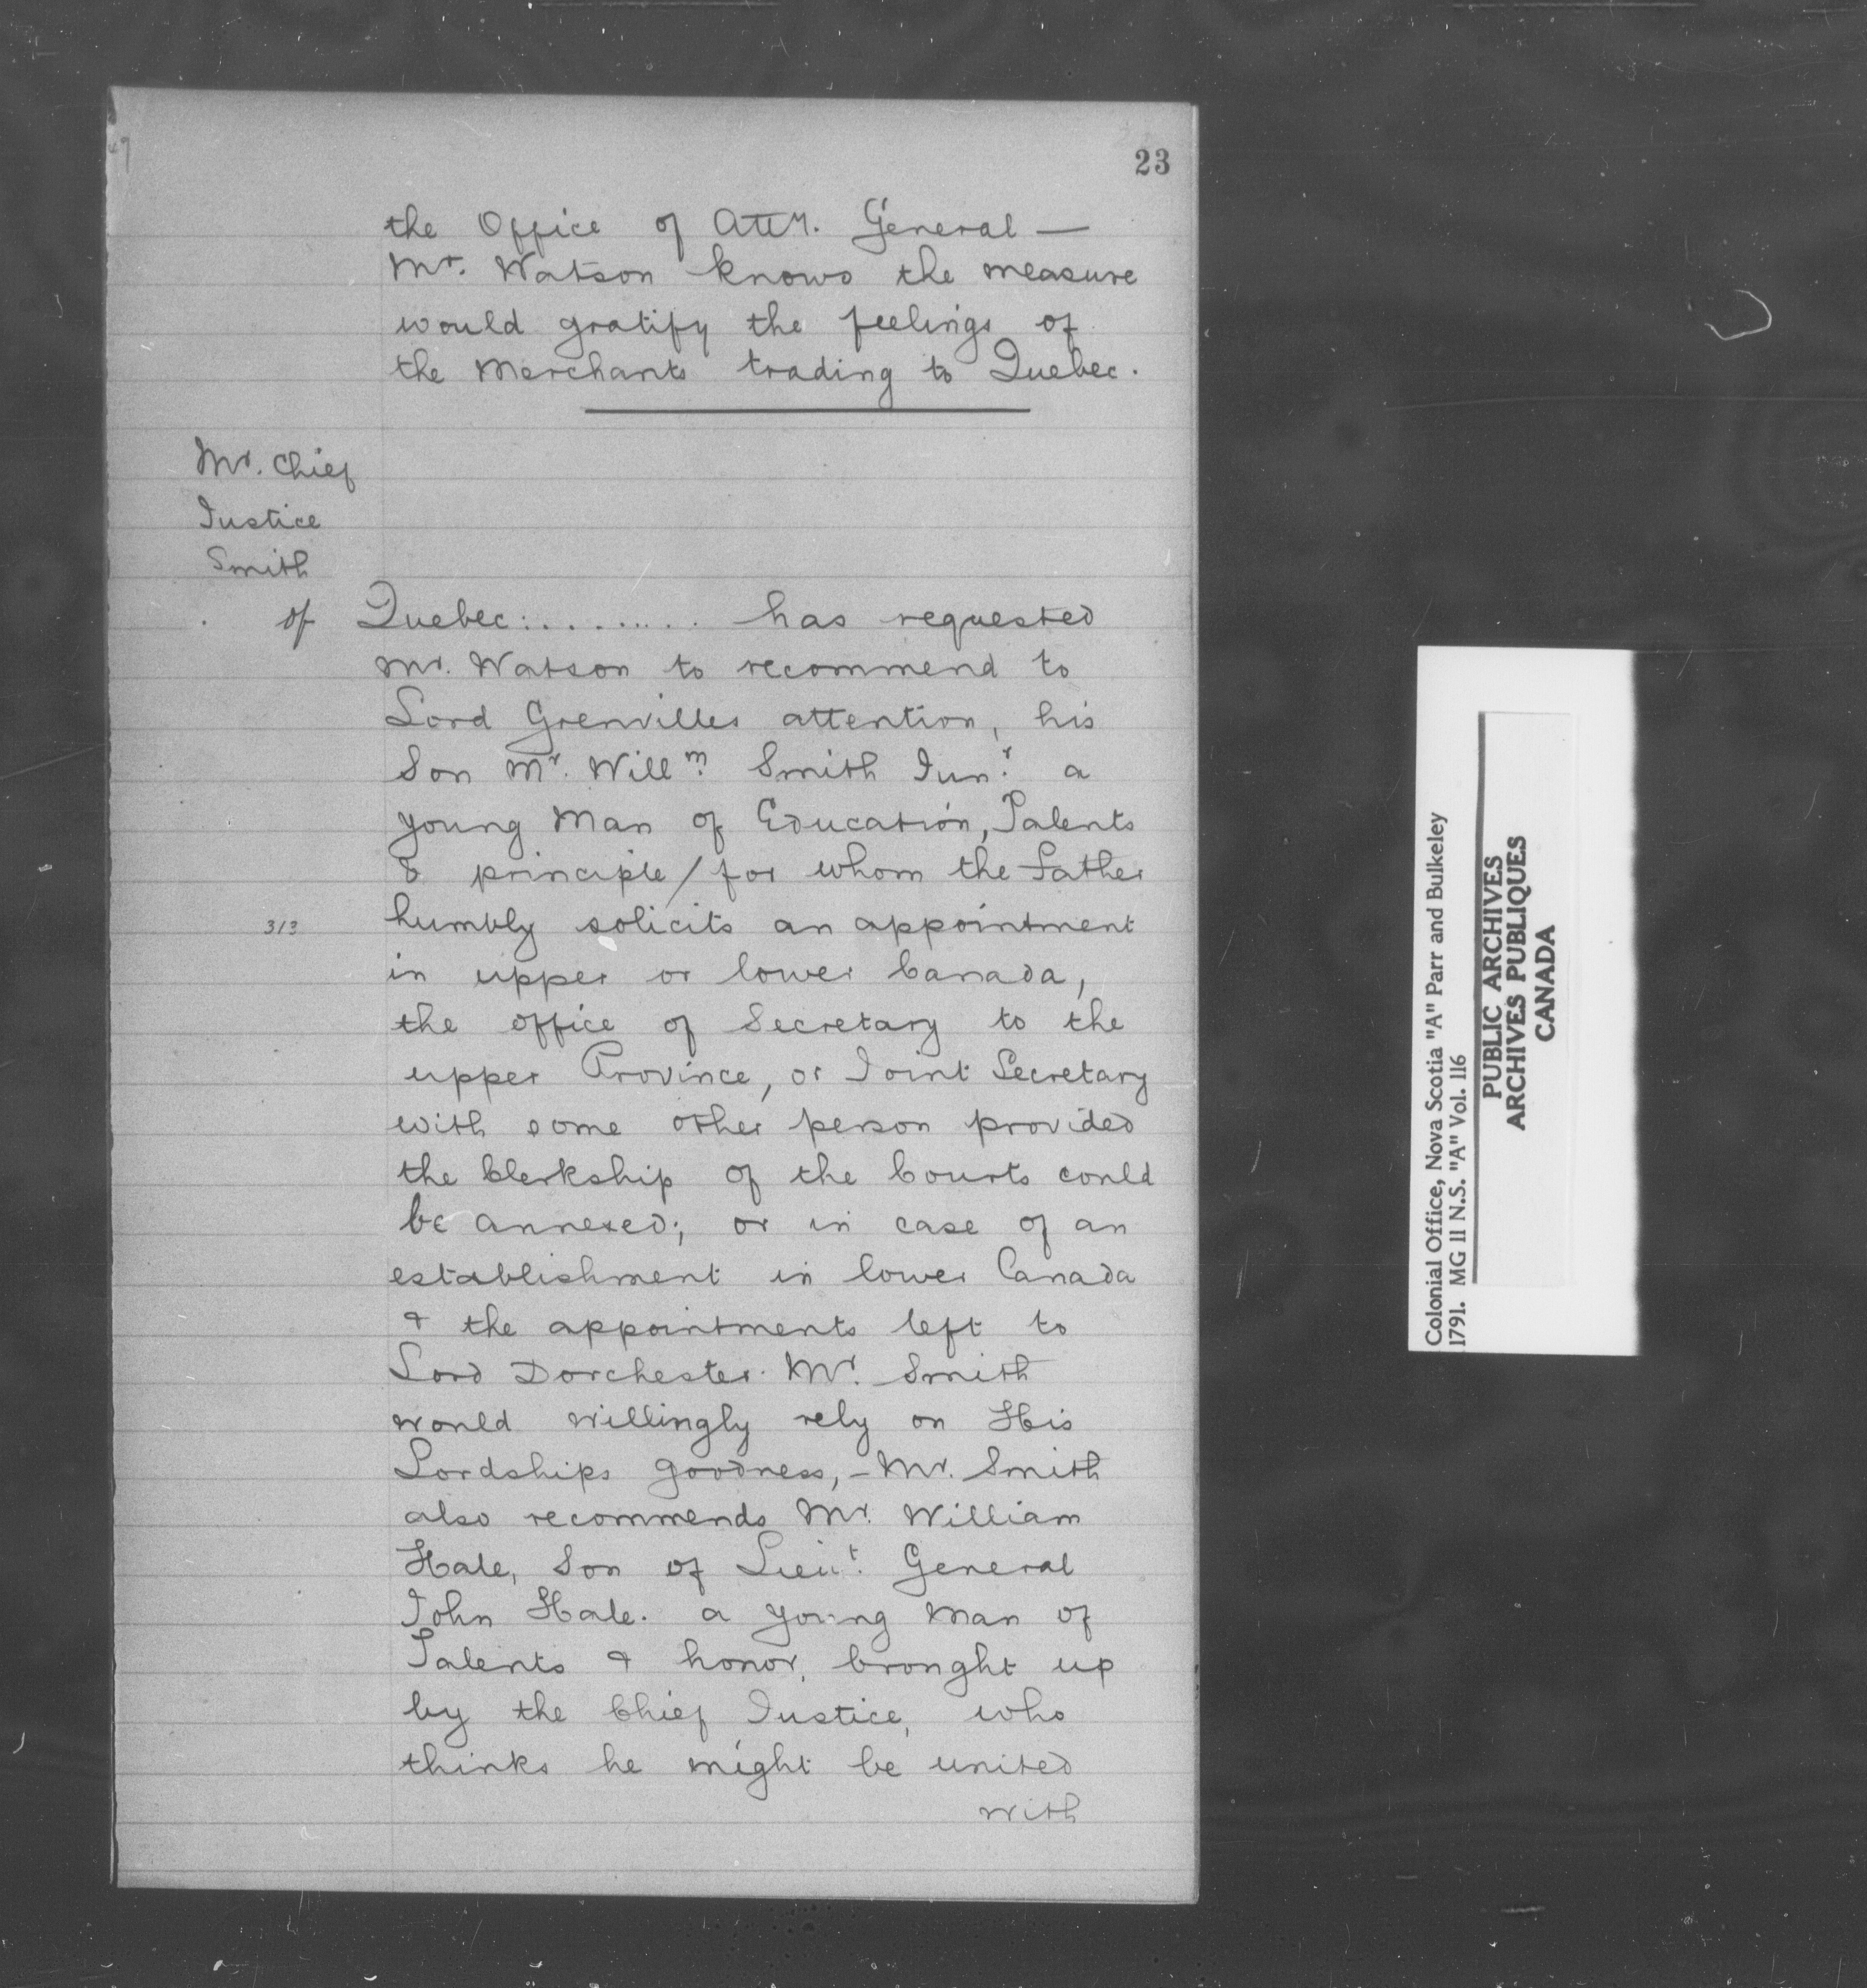 23
the Office of Atty. General —
Mr. Watson knows the measure
would gratify the feelings of
the Merchants trading to Quebec.
Mr. Chief
Justice
Smith
of Quebec:......... has requested
Mr. Watson to recommend to
Lord Grenvilles attention, his
Son Mr. Willm. Smith Junr. a
young Man of Education, Talents
& principle / for whom the Father
313 humbly solicits an appointment
in upper or lower Canada,
the office of Secretary to the
upper Province, or Joint Secretary
with some other person provided
the Clerkship of the Courts could
be annexed; or in case of an
establishment in lower Canada
& the appointments left to
Lord Dorchester. Mr. Smith
would willingly rely on His
Lordships goodness, – Mr. Smith
also recommends Mr. William
Hale, Son of Lieut. General
John Hale. a young Man of
Talents & honor, brought up
by the Chief Justice, who
thinks he might be united
with
Colonial Office, Nova Scotia "A" Parr and Bulkeley
1791. MG 11 N.S. "A" Vol. 116
PUBLIC ARCHIVES
ARCHIVES PUBLIQUES
CANADA